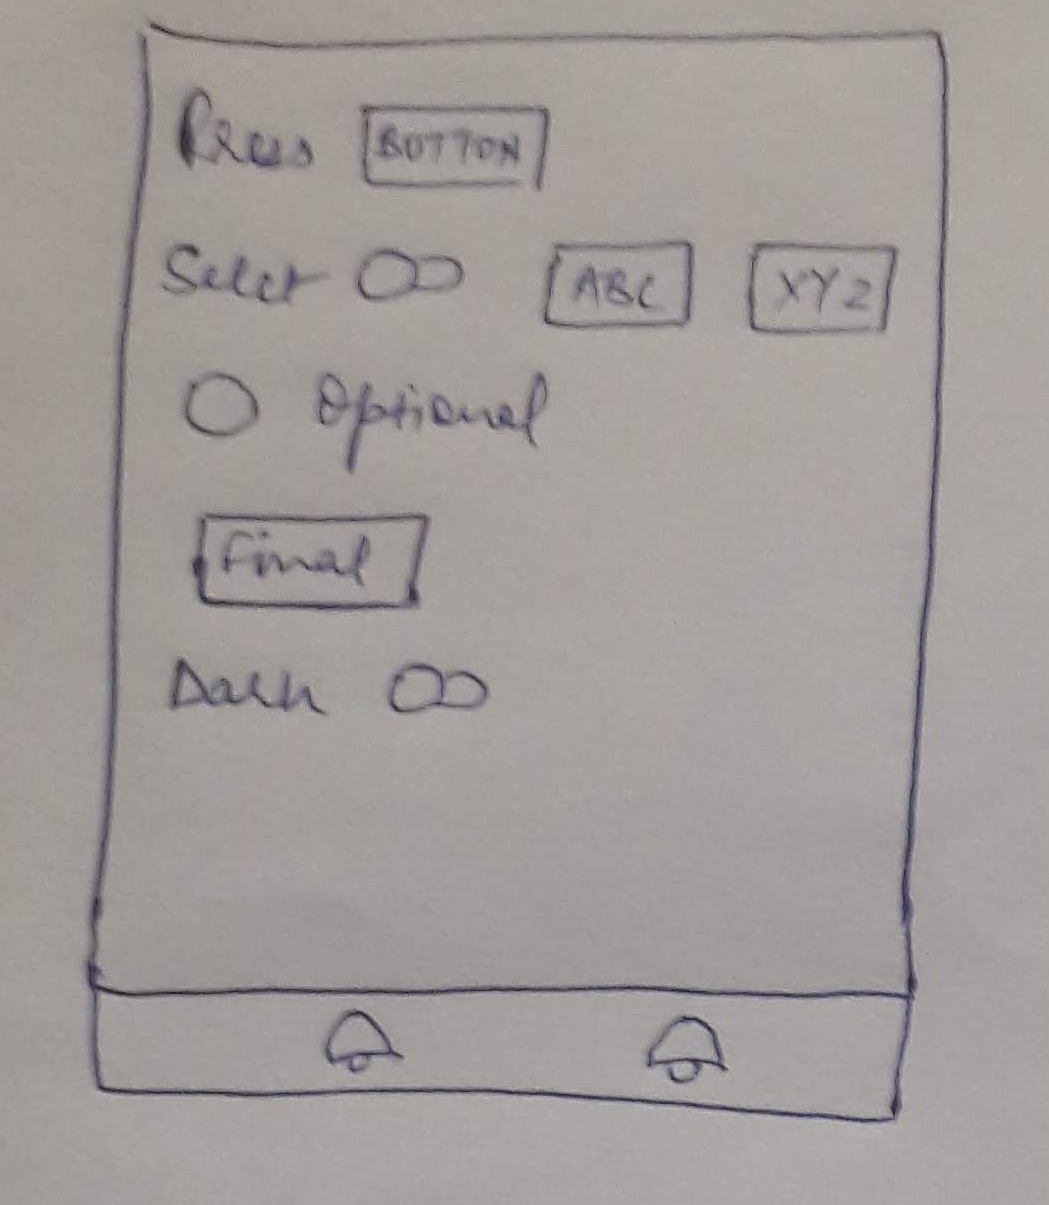 Press BUTTON
Select ABC XYZ
Optional
Final
Dark